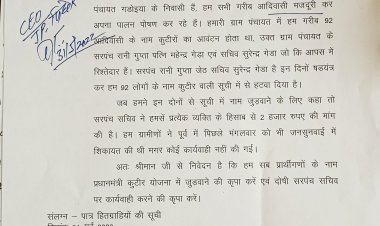 पंचायत गडोइया के निवासी हैं, हम सभी गरीब आदिवासी मजदूरी कर
अपना पालन पोषण कर रहे हैं। हमारी ग्राम पंचायत में हम गरीब 92
आदिवासी के नाम कुटीरों का आवंटन होता था, उक्त ग्राम पंचायत के
सरपंच रानी गुप्ता पत्नि महेन्द्र गेडा एवं सचिव सुरेन्द्र गेडा जो कि आपस में
रिश्तेदार हैं। सरपंच रानी गुप्ता जेठ सचिव सुरेन्द्र गेडा है इन दिनों षडयंत्र
कर हम 92 लोगों के नाम कुटीर वाली सूची में से हटवा दिया है।
जब हमने इन दोनों से सूची में नाम जुडवाने के लिए कहा तो
सरपंच सचिव ने हमसे प्रत्येक व्यक्ति के हिसाब से 2 हजार रुपए की मांग
की है। हम ग्रामीणों ने पूर्व में पिछले मंगलवार को भी जनसुनवाई में
शिकायत की थी मगर कोई कार्यवाही नहीं की गई।
अतः श्रीमान जी से निवेदन है कि हम सब प्रार्थीगणों के नाम
प्रधानमंत्री कुटीर योजना में जुडवाने की कृपा करें एवं दोषी सरपंच सचिव
पर कार्यवाही करने की कृपा करें।
संलग्न - पात्र हितग्राहियों की सूची
CEO